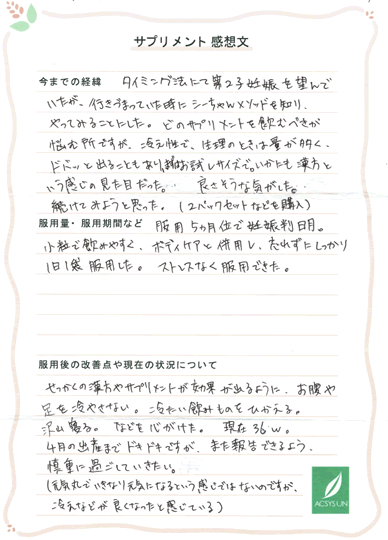 サプリメント 感想文
今までの経緯 タイミング法にて第2子妊娠を望んで
いたが、行きづまっていた時にシーちゃんメソッドを知り、
やってみることにした。どのサプリメントを飲むべきか
悩む所ですが、冷え性で、生理のときは量が多く、
ドバッと出ることもあり、お試しサイズで。いかにも漢方と
いう感じの見た目だった。良さそうな気がした。
続けてみようと思った。(2パックセットなどを購入)
服用量・服用期間など 服用5ヵ月位で妊娠判明。
小粒で飲みやすく、ボディケアと併用し、忘れずにしっかり
1日1袋服用した。ストレスなく服用できた。
服用後の改善点や現在の状況について
せっかくの漢方やサプリメントが効果が出るように、お腹や
足を冷やさない。冷たい飲みものをひかえる。
沢山寝る。などを心がけた。現在36w。
4月の出産までドキドキですが、また報告できるよう、
慎重に過ごしていきたい。
(元気丸でいきなり元気になるという感じではないのですが、
冷えなどが良くなったと感じている)
ACSYSUN